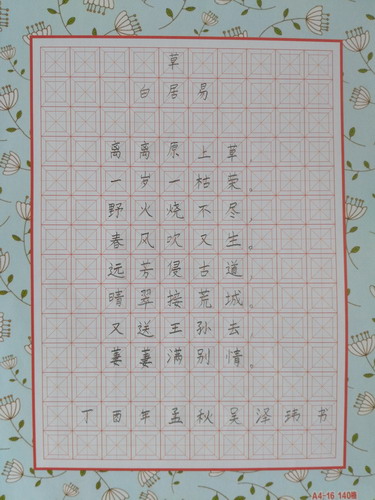 草
白居易
离离原上草，
一岁一枯荣。
野火烧不尽，
春风吹又生。
远芳侵古道，
晴翠接荒城。
又送王孙去，
萋萋满别情。
丁酉年孟秋吴泽玮书
A4-16 140格